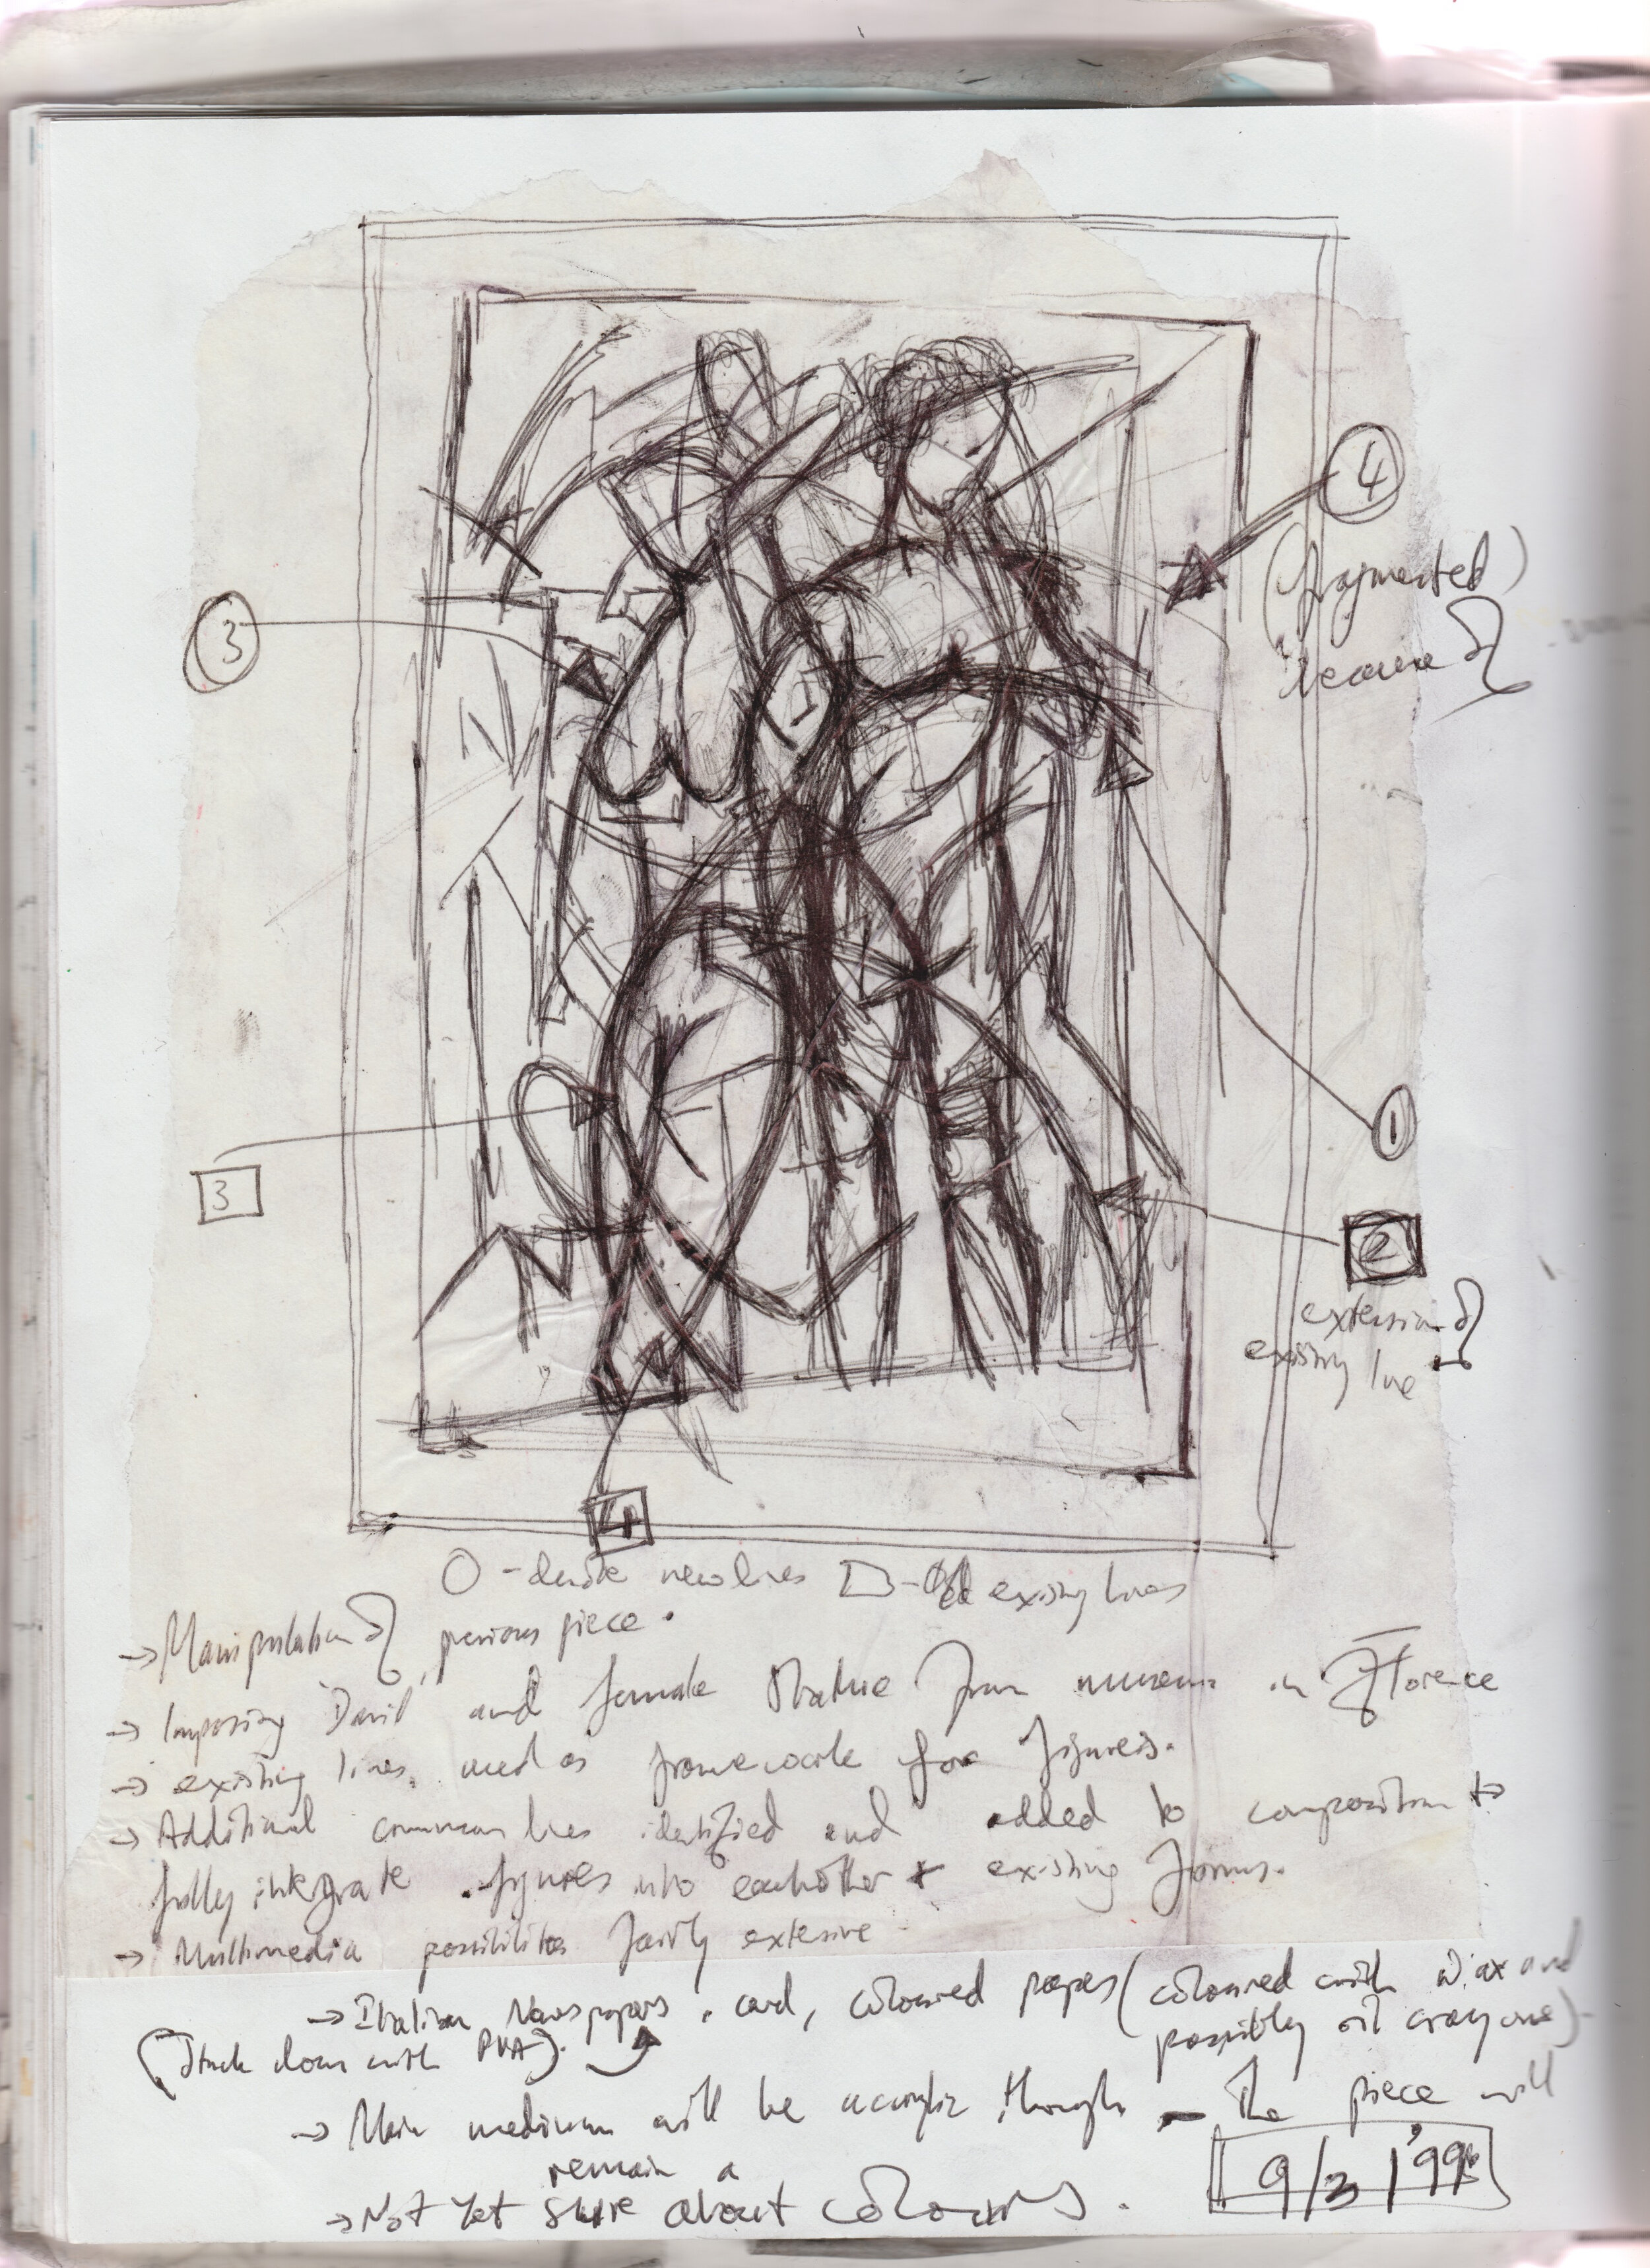 4
(fragmented)
because of
3
1
1
3
2
extension of
existing line
4
O - denote new lines □ - Old exising lines
→ Manipulation of previous piece.
→ Imposing 'David' and female statue from museum in Florence
→ existing lines used as framework for figures.
→ Additional common lines identified and added to composition to
fully integrate figures into eachother + existing forms.
→ Multimedia possibilities fairly extensive
→ Italian Newspapers, card, coloured papers (coloured with wax and
possibly oil crayons).
(Stuck down with PVA).
→ Main medium will be acrylic though - The piece will
remain a
→ Not yet sure about colours.
9/3/'99